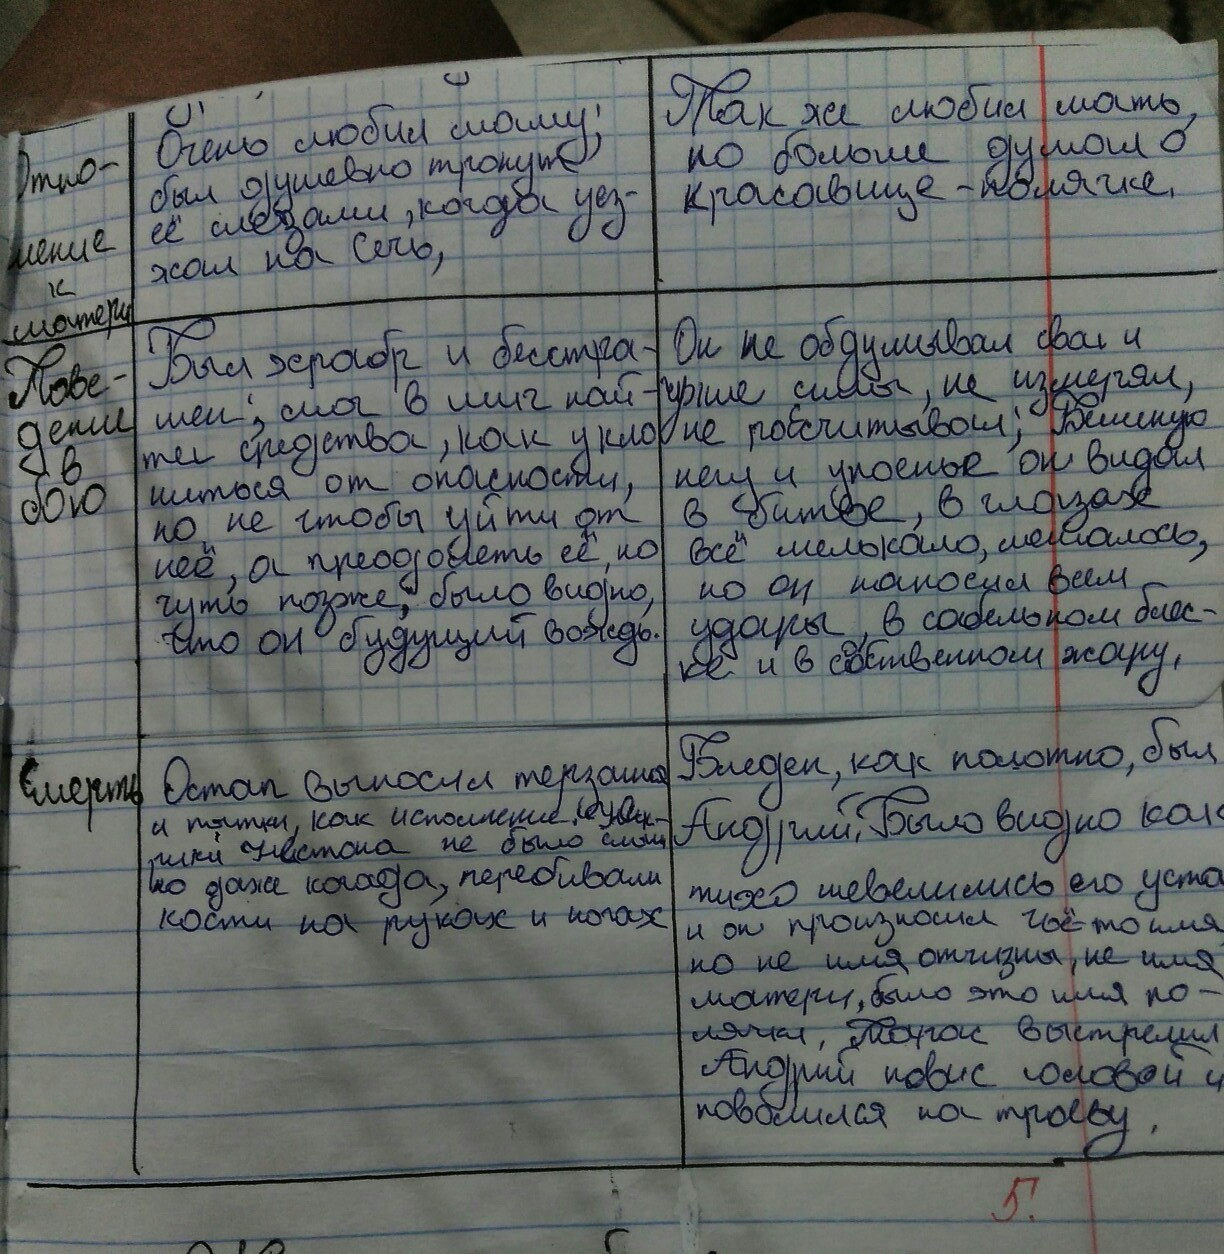 Отно-
шение
к
матери
Очень любил маму;
был душевно тронут
её слезами, когда уез-
жал на Сечь,
Так же любил мать,
но больше думал о
красавице - полячке.
Пове-
дение
в
бою
Был храбр и бесстра-
шен; смог в миг най-
ти средства, как укло
ниться от опасности,
но не чтобы уйти от
неё, а преодолеть её, но
чуть позже, было видно,
что он будущий вождь.
Он не обдумывал свои и
чужие силы, не измерял,
не рассчитывал; Бешеную
негу и упоенье он видал
в битве, в глазах
всё мелькало, мешалось,
но он наносил всем
удары, в сабельном блес-
ке и в собственном жару.
Смерть
Остап выносил терзания
и пытки, как исполнение
крика не стона не было слыш
но даже когда, перебивали
кости на руках и ногах
Бледен, как полотно, был
Андрий, Было видно как
тихо шевелились его уста
и он произносил чьё-то имя
но не имя отчизны, не имя
матери, было это имя по-
лячки, Тарас выстрелил
Андрий повис головой и
повалился на траву.
5.